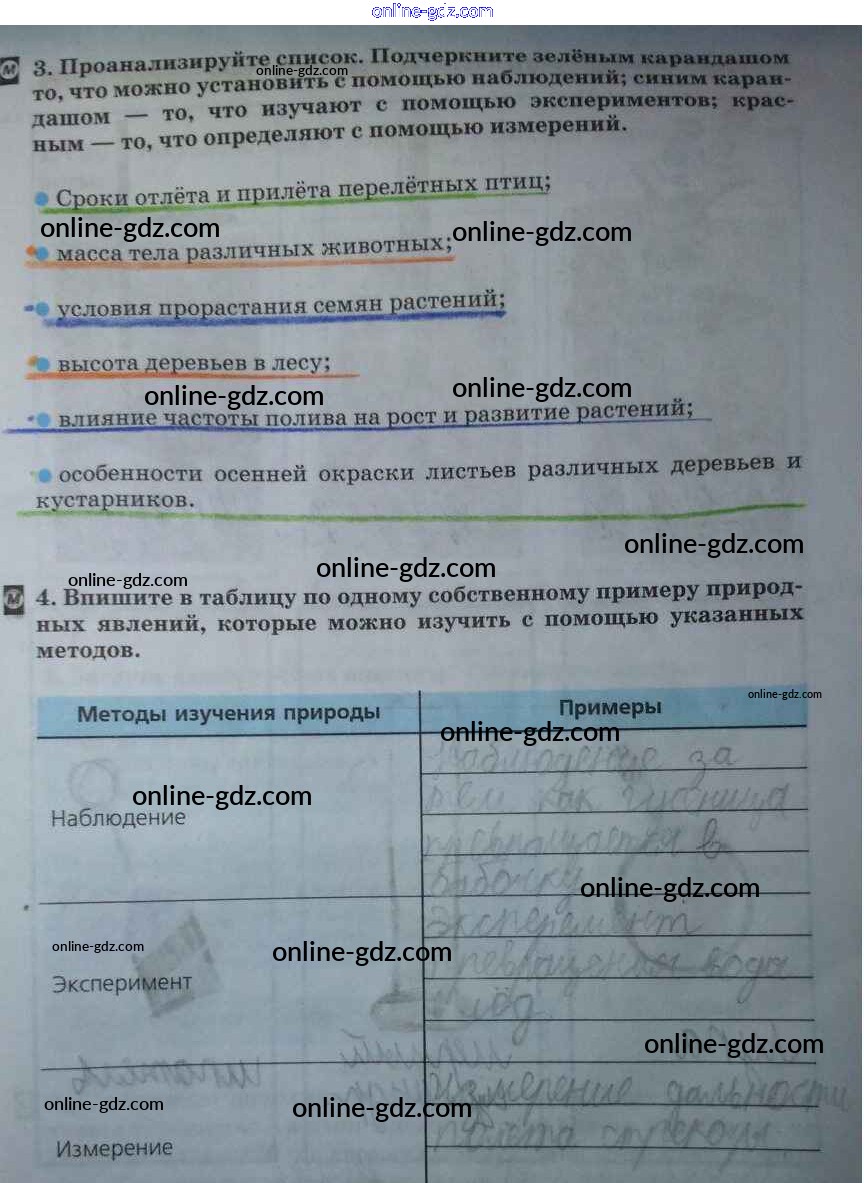 online-gdz.com
3. Проанализируйте список. Подчеркните зелёным карандашом
online-gdz.com
то, что можно установить с помощью наблюдений; синим каран-
дашом — то, что изучают с помощью экспериментов; крас-
ным — то, что определяют с помощью измерений.
Сроки отлёта и прилёта перелётных птиц;
online-gdz.com
online-gdz.com
масса тела различных животных;
условия прорастания семян растений;
высота деревьев в лесу;
online-gdz.com
online-gdz.com
влияние частоты полива на рост и развитие растений;
особенности осенней окраски листьев различных деревьев и
кустарников.
online-gdz.com
online-gdz.com
online-gdz.com
4. Впишите в таблицу по одному собственному примеру природ-
ных явлений, которые можно изучить с помощью указанных
методов.
online-gdz.com
Методы изучения природы
Примеры
online-gdz.com
Наблюдение за
тем как гусеница
превращается в
бабочку
online-gdz.com
Наблюдение
online-gdz.com
Эксперемент
превращения воды
в лёд.
online-gdz.com
online-gdz.com
Эксперимент
online-gdz.com
Измерение дальности
полёта
online-gdz.com
online-gdz.com
Измерение